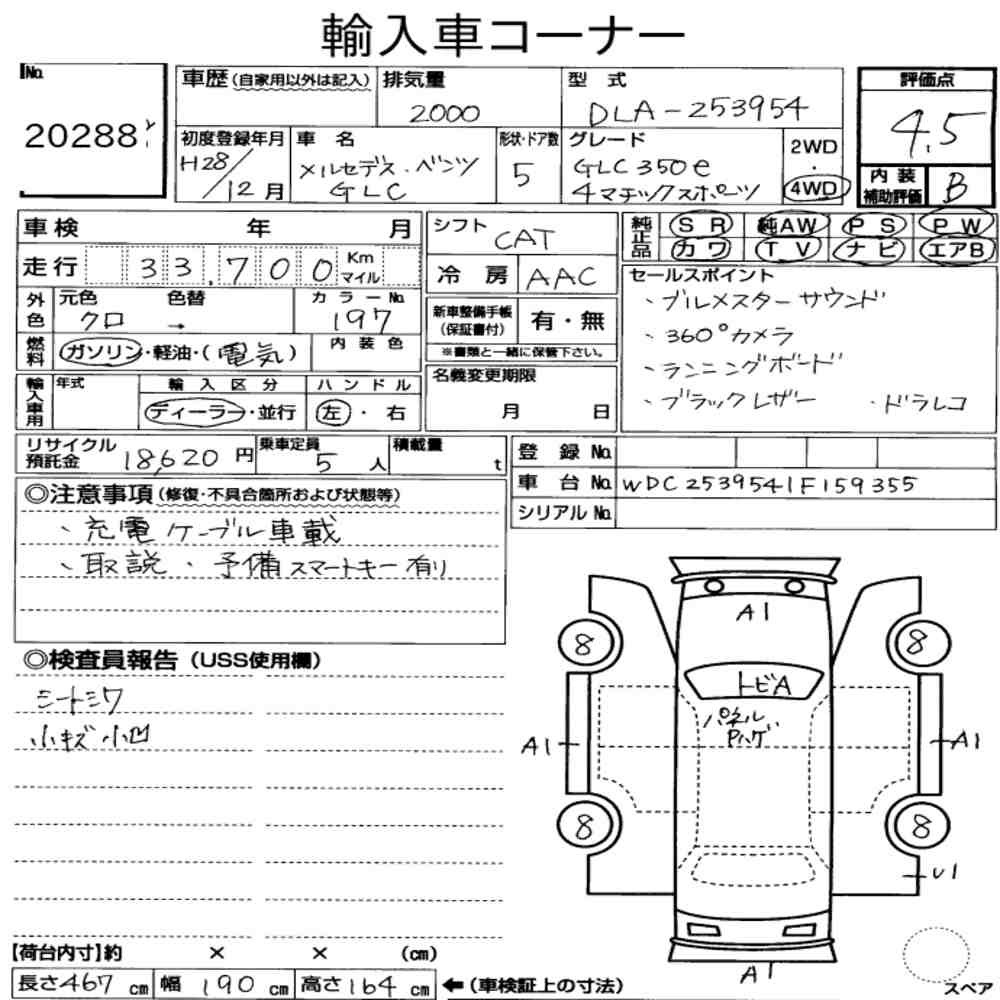 輸入車コーナー
No. 20288
車歴(自家用以外は記入) 排気量 2000 型式 DLA-253954
初度登録年月 H28/12月 車名 メルセデス・ベンツ GLC 形状・ドア数 5 グレード GLC350e 4マチックスポーツ 2WD・4WD
評価点 4.5
内装補助評価 B
車検 年 月
走行 33,700 Km マイル
外色 元色 クロ 色替 → カラーNo. 197
燃料 ガソリン・軽油・(電気) 内装色
輸入車用 年式 輸入区分 ディーラー・並行 ハンドル 左・右
シフト CAT
冷房 AAC
新車整備手帳(保証書付) 有・無
※書類と一緒に保管下さい。
名義変更期限
月 日
純正品 SR 純AW PS PW
カワ TV ナビ エアB
セールスポイント
、ブルメスターサウンド
、360°カメラ
、ランニングボード
、ブラックレザー ・ドラレコ
リサイクル預託金 18,620円 乗車定員 5人 積載量 t
登録No.
車台No. WDC2539541F159355
シリアルNo.
◎注意事項(修復・不具合箇所および状態等)
、充電ケーブル車載
、取説・予備スマートキー有り
◎検査員報告(USS使用欄)
シートシワ
小キズ小凹
A1
8 8
トビA
パネルPハゲ
A1 A1
8 8
U1
A1
スペア
【荷台内寸】約 × × (cm)
長さ467cm 幅190cm 高さ164cm ←(車検証上の寸法)